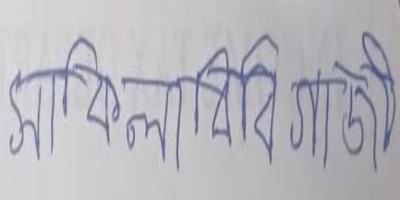 সাকিলা বিবি গাজী